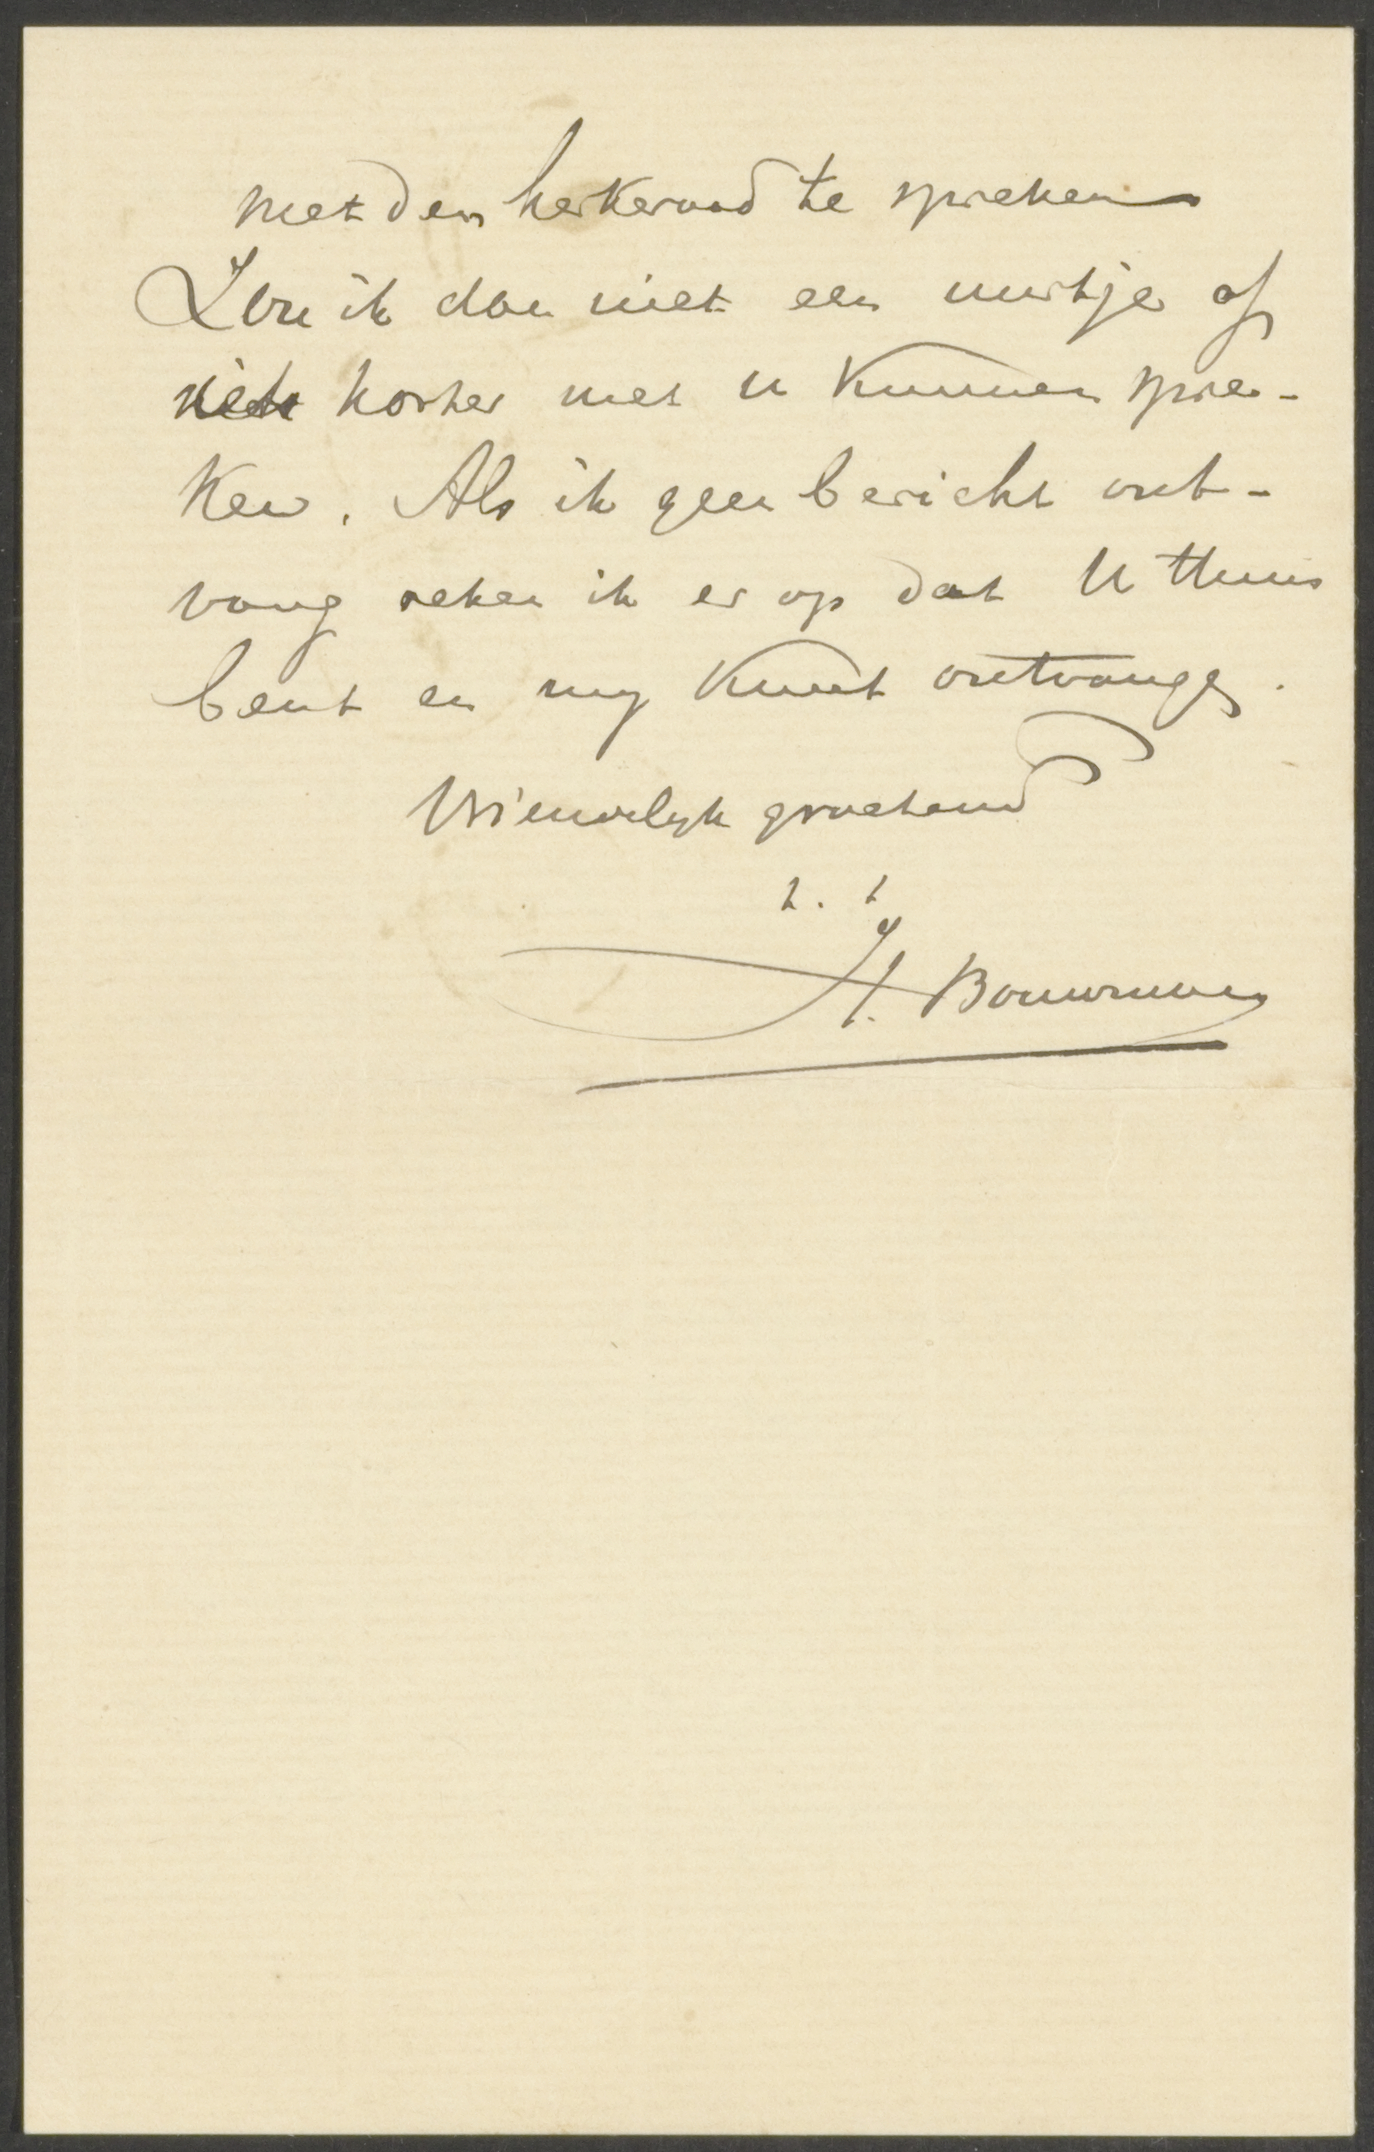 met den kerkeraad te spreken
Zou ik dan niet een uurtje of
iets korter met U kunnen spre-
ken. Als ik geen bericht ont-
vang reken ik er op dat U thuis
bent en my kunt ontvangen.
Vriendelyk groetend
t. t
H. Bouwman